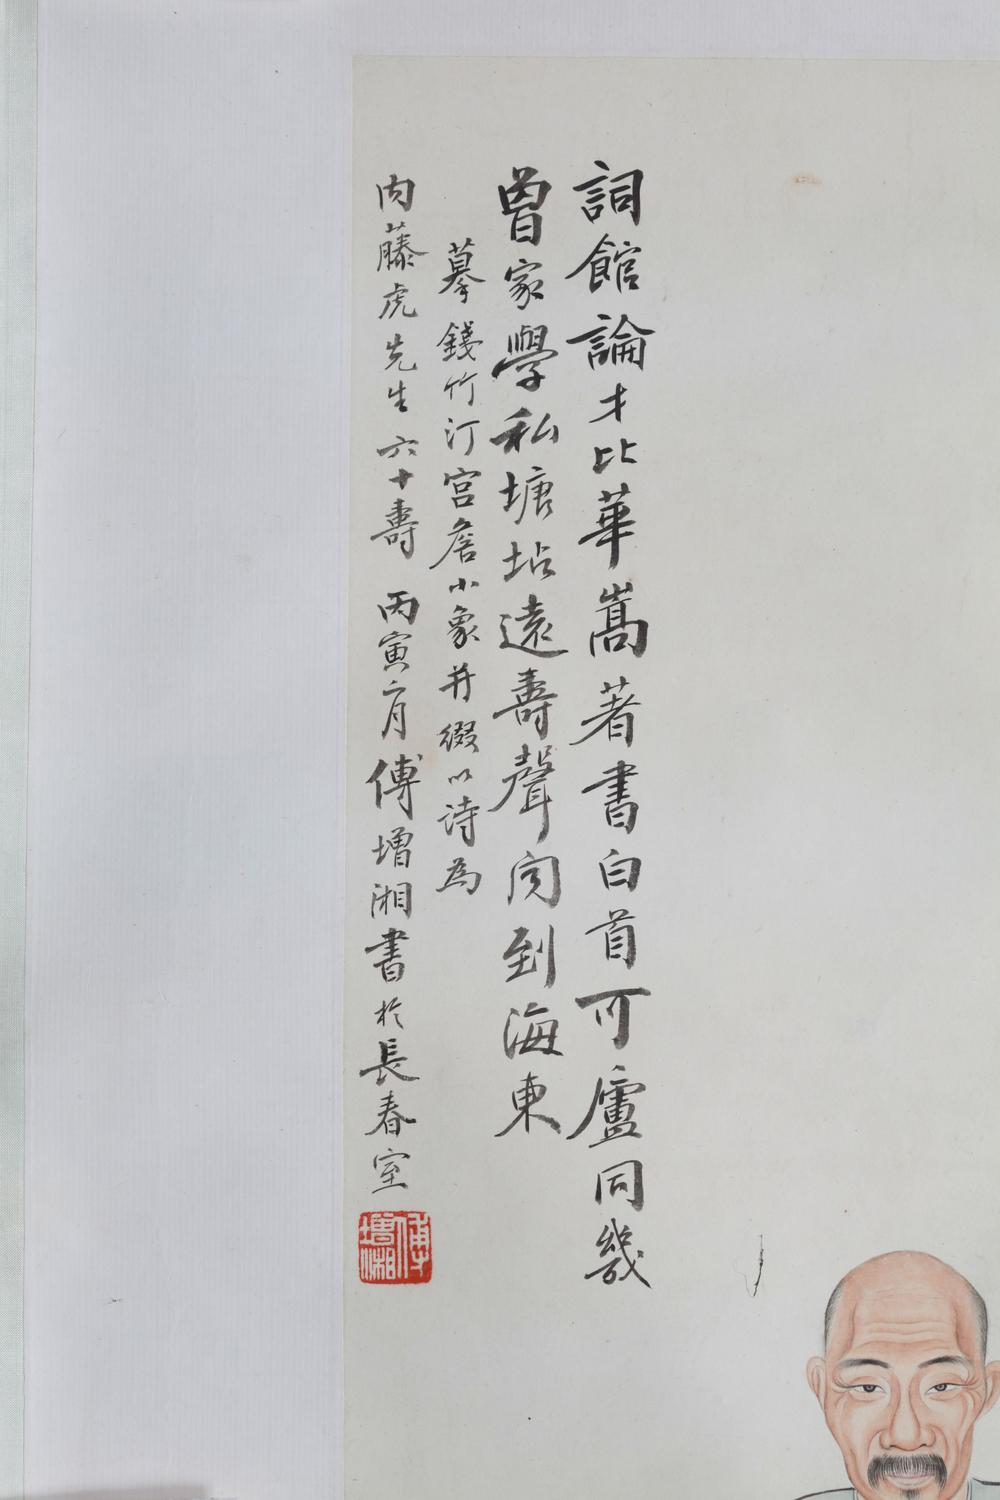 詞館論才比華嵩著書白首可廬同幾
曾家學私塘坫遠壽聲聞到海東
摹錢竹汀宮詹小象并綴以詩為
內藤虎先生六十壽 丙寅二月傅增湘書於長春室
傅增湘